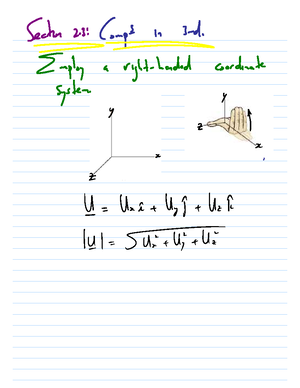 Section 2.3: Comp's in 3nd.
Employ a right-handed coordinate
system
y
x
z
y
z
x
U = Ux î + Uy ĵ + Uz k̂
|U| = √Ux² + Uy² + Uz²